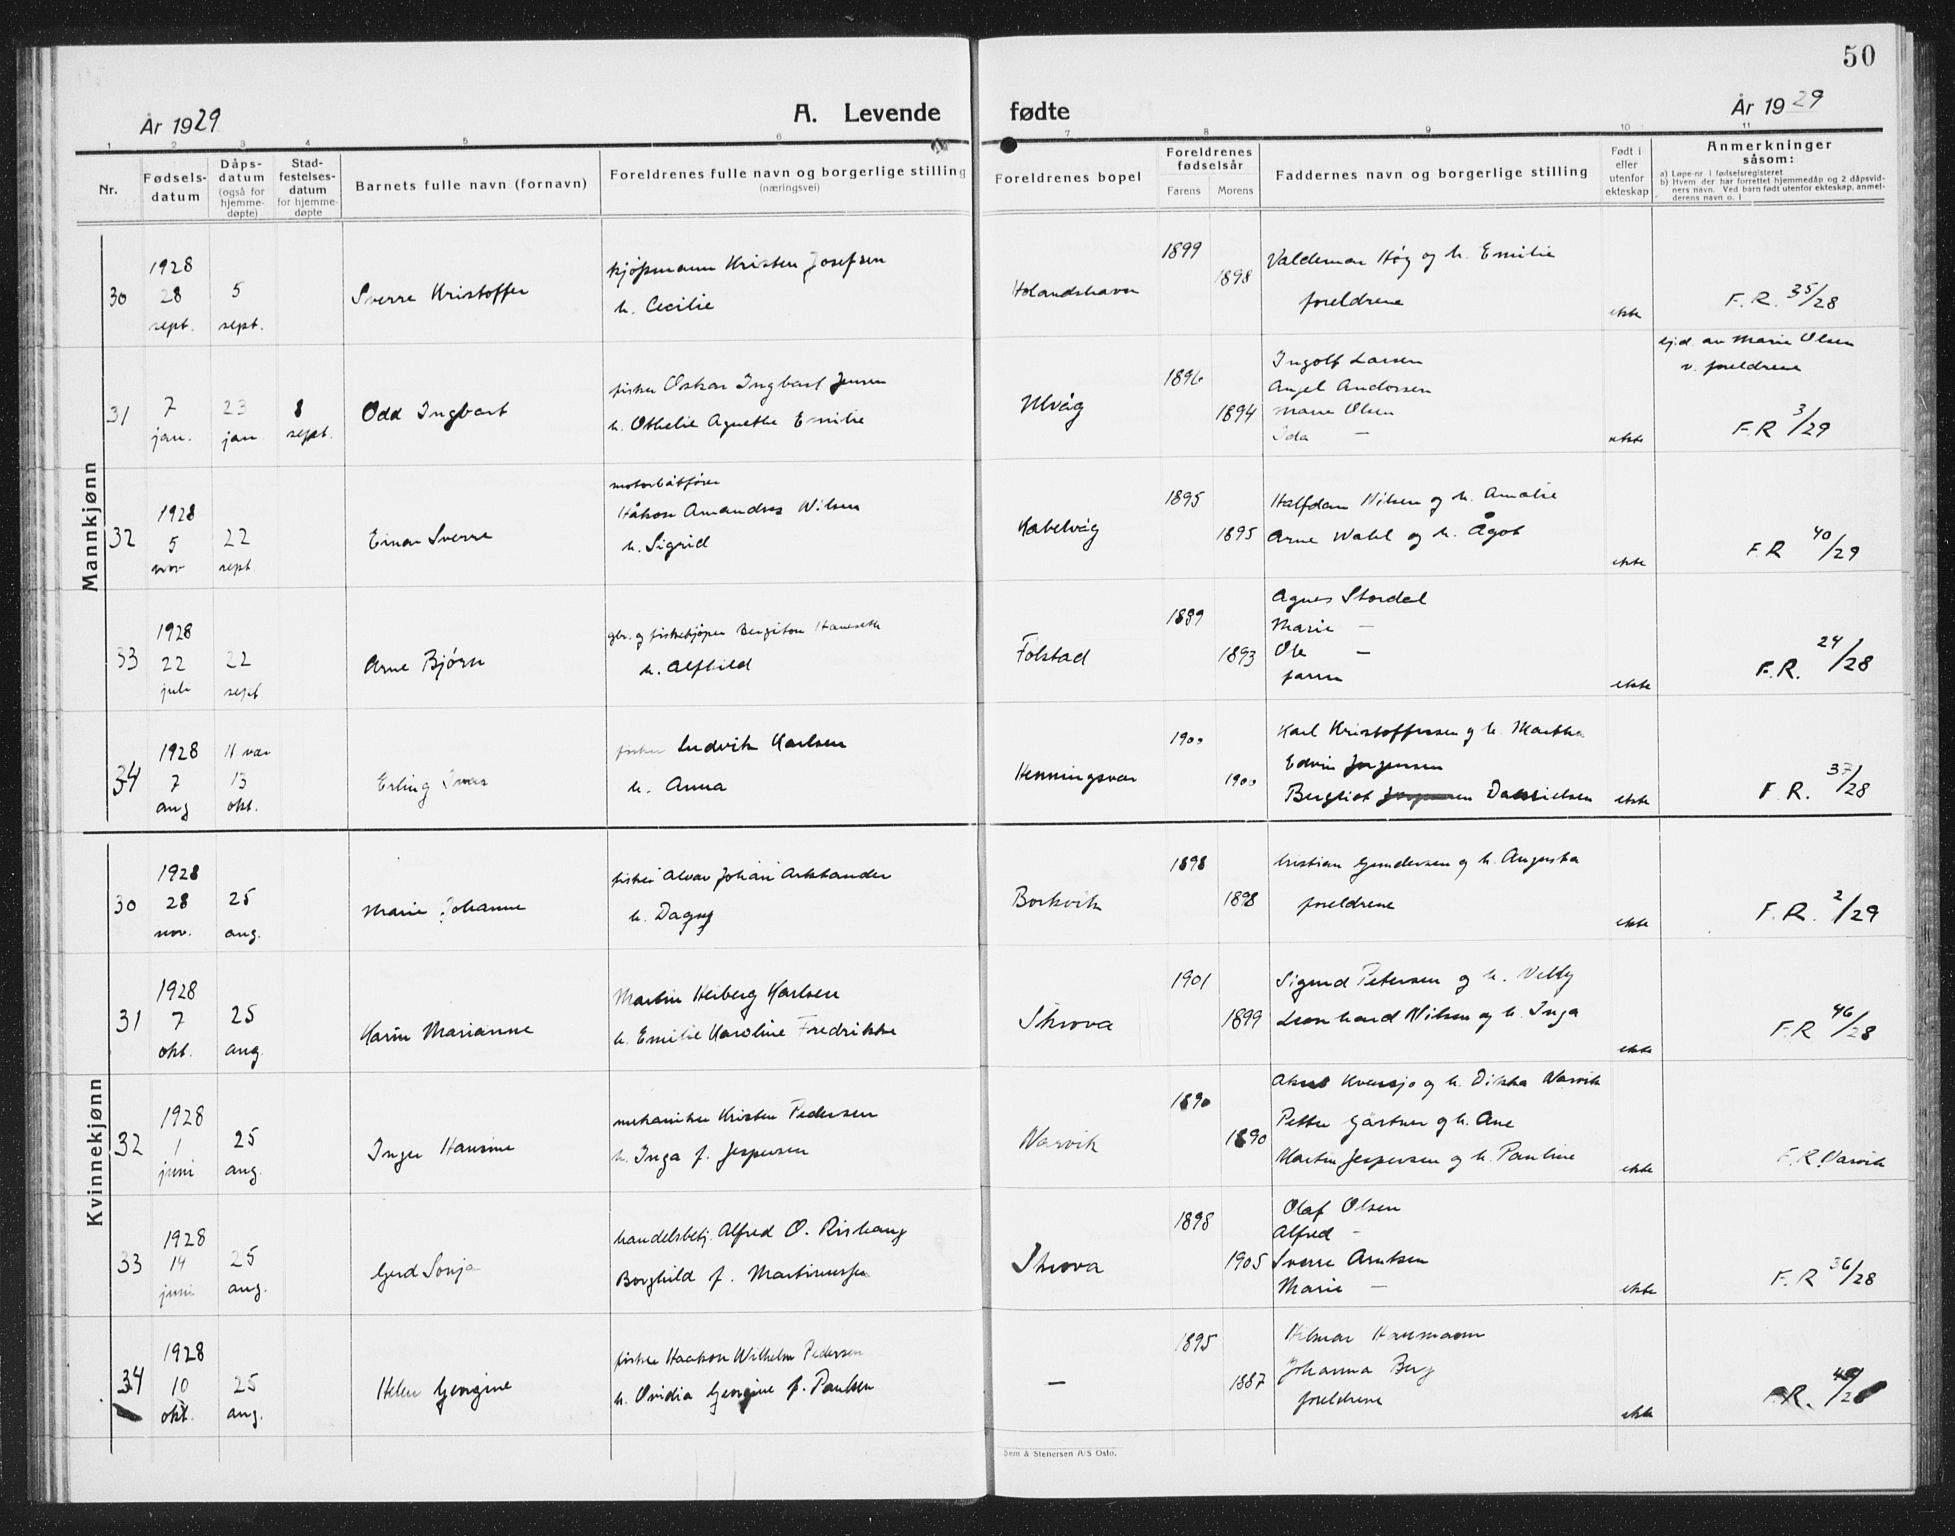 50
År 1929
A. Levende fødte
År 1929
1 2 3 4 5 6 7 8 9 10 11
Nr.
Fødsels-
datum
Dåps-
datum
(også for
hjemme-
døpte)
Stad-
festelses-
datum
for hjemme-
døpte
Barnets fulle navn (fornavn)
Foreldrenes fulle navn og borgerlige stilling
(næringsvei)
Foreldrenes bopel
Foreldrenes
fødselsår
Farens Morens
Faddernes navn og borgerlige stilling
Født i
eller
utenfor
ekteskap
Anmerkninger
såsom:
a) Løpe-nr. i fødselsregisteret
b) Hvem der har forrettet hjemmedåp og 2 dåpsvid-
ners navn. Ved barn født utenfor ekteskap, anmel-
derens navn o. l
Mannkjønn
30
1928
28
sept.
5
sept.
Sverre Kristoffer
kjøpmann Kristen Josefsen
h. Cecilie
Holandshavn
1899
1898
Valdemar Høg og h. Emilie
foreldrene
ekte
F. R. 35/28
31
7
jan.
23
jan.
8
sept.
Odd Ingbart
fisker Oskar Ingbart Jensen
h. Othelie Agnethe Emilie
Ulvåg
1896
1894
Ingolf Larsen
Angel Andorsen
Marie Olsen
Ida —
ekte
hj.d. av Marie Olsen
v. foreldrene
F.R 3/29
32
1928
5
nov
22
sept.
Einar Sverre
motorbåtfører
Håkon Amandus Nilsen
h. Sigrid
Kabelvåg
1895
1895
Halfdan Nilsen og h. Amalie
Arne Wahl og h. Ågot
ekte
F.R 40/29
33
1928
22
juli
22
sept
Arne Bjørn
gbr. og fiskekjøper Bergiton Hanseth
h. Alfhild
Folstad
1899
1893
Agnes Stordal
Marie —
Ole —
faren
ekte
F.R. 24/28
34
1928
7
aug
H vær
13
okt.
Erling Ivar
fisker Ludvik Karlsen
h. Anna
Henningsvær
1900
1900
Karl Kristoffersen og h. Martha
Edvin Jørgensen
Bergliot Danielsen
ekte
F. R. 37/28
Kvinnekjønn
30
1928
28
nov.
25
aug.
Marie Johanne
fisker Alvar Johan Arktander
h. Dagny
Borkvik
1898
1898
Kristian Gundersen og h. Augusta
foreldrene
ekte
F. R. 2/29
31
1928
7
okt.
25
aug.
Karin Marianne
Martin Heiberg Karlsen
h. Emilie Karoline Fredrikke
Skrova
1901
1899
Sigurd Petersen og h. Velly
Leonhard Nilsen og h. Inga
ekte
F.R 46/28
32
1928
1
juni
25
aug.
Inger Hansine
mekaniker Kristen Pedersen
h. Inga f. Jespersen
Narvik
1890
1890
Aksel Kversjo og h. Dikka Narvik
Petter Gärtner og h. Ane
Martin Jespersen og h. Pauline
ekte
F. R. Narvik
33
1928
14
juni
25
aug.
Gerd Sonja
handelsbetj. Alfred O. Rishaug
Borghild f. Martinussen
Skrova
1898
1905
Olaf Olsen
Alfred —
Sverre Arntsen
Marie —
ekte
F. R 36/28
34
1928
10
okt.
25
aug.
Helen Georgine
fisker Haakon Wilhelm Pedersen
h. Ovidia Georgine f. Paulsen
—
1895
1887
Hilmar Hansmann
Johanna Berg
foreldrene
ekte
F.R.
Sem & Stenersen A/S Oslo.